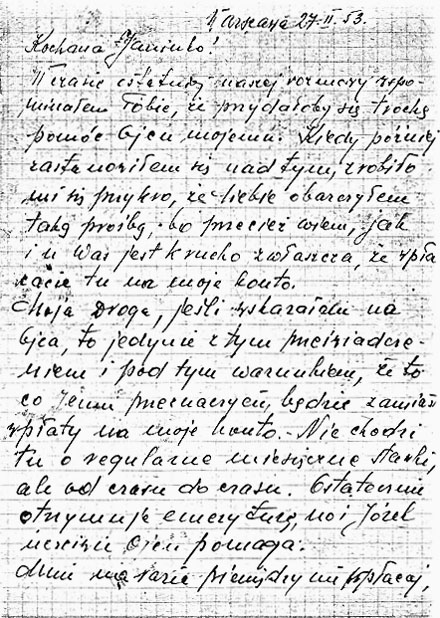 Warszawa 27.II.53.
Kochana Janinko!
W czasie ostatniej naszej rozmowy wspo-
minałem Tobie, że przydałoby się trochę
pomóc Ojcu mojemu. Kiedy później
zastanowiłem się nad tym, zrobiło
mi się przykro, że Ciebie obarczyłem
taką prośbą, bo przecież wiem, jak
i u Was jest krucho zwłaszcza, że wpła
cacie tu na moje konto.
Moja Droga, jeśli wskazałem na
Ojca, to jedynie z tym przeświadcze-
niem i pod tym warunkiem, że to
co Jemu przeznaczycie, będzie zamiast
wpłaty na moje konto. - Nie chodzi
tu o regularne miesięczne stawki,
ale od czasu do czasu. Ostatecznie
otrzymuje emeryturę, no i Józek
Ojcu pomaga.
Mnie na razie pieniędzy nie wpłacaj,